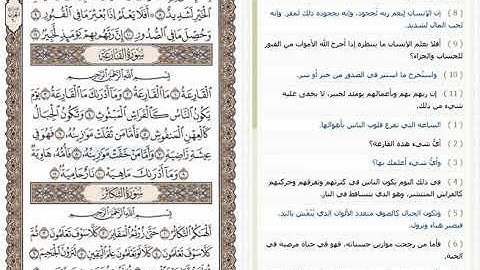 ( 8 ) إن الإنسان لِنعم ربه لَجحود، وإنه بجحوده ذلك لمقر. وإنه
لحب المال لشديد.
( 9 ) أفلا يعلم الإنسان ما ينتظره إذا أخرج الله الأموات من القبور
للحساب والجزاء؟
( 10 ) واستُخرج ما استتر في الصدور من خير أو شر.
( 11 ) إن ربهم بهم وبأعمالهم يومئذ لخبير، لا يخفى عليه
شيء من ذلك.
( 1 ) الساعة التي تقرع قلوب الناس بأهوالها.
( 2 ) أيُّ شيء هذه القارعة؟
( 3 ) وأيُّ شيء أعلمك بها؟
( 4 ) في ذلك اليوم يكون الناس في كثرتهم وتفرقهم وحركتهم
كالفراش المنتشر، وهو الذي يتساقط في النار.
( 5 ) وتكون الجبال كالصوف متعدد الألوان الذي يُنْفَش باليد،
فيصير هباء ويزول.
( 6 ) فأما من رجحت موازين حسناته، فهو في حياة مرضية في
الجنة.
الْخَيْرِ لَشَدِيدٌ ۝٨ أَفَلَا يَعْلَمُ إِذَا بُعْثِرَ مَا فِي الْقُبُورِ ۝٩
وَحُصِّلَ مَا فِي الصُّدُورِ ۝١٠ إِنَّ رَبَّهُم بِهِمْ يَوْمَئِذٍ لَّخَبِيرٌ ۝١١
سُورَةُ الْقَارِعَةِ
بِسْمِ اللَّهِ الرَّحْمَٰنِ الرَّحِيمِ
الْقَارِعَةُ ۝١ مَا الْقَارِعَةُ ۝٢ وَمَا أَدْرَاكَ مَا الْقَارِعَةُ ۝٣ يَوْمَ
يَكُونُ النَّاسُ كَالْفَرَاشِ الْمَبْثُوثِ ۝٤ وَتَكُونُ الْجِبَالُ
كَالْعِهْنِ الْمَنفُوشِ ۝٥ فَأَمَّا مَن ثَقُلَتْ مَوَازِينُهُ ۝٦ فَهُوَ فِي
عِيشَةٍ رَّاضِيَةٍ ۝٧ وَأَمَّا مَنْ خَفَّتْ مَوَازِينُهُ ۝٨ فَأُمُّهُ هَاوِيَةٌ
۝٩ وَمَا أَدْرَاكَ مَا هِيَهْ ۝١٠ نَارٌ حَامِيَةٌ ۝١١
سُورَةُ التَّكَاثُرِ
بِسْمِ اللَّهِ الرَّحْمَٰنِ الرَّحِيمِ
أَلْهَاكُمُ التَّكَاثُرُ ۝١ حَتَّىٰ زُرْتُمُ الْمَقَابِرَ ۝٢ كَلَّا سَوْفَ تَعْلَمُونَ
۝٣ ثُمَّ كَلَّا سَوْفَ تَعْلَمُونَ ۝٤ كَلَّا لَوْ تَعْلَمُونَ عِلْمَ الْيَقِينِ ۝٥ لَتَرَوُنَّ الْجَحِيمَ